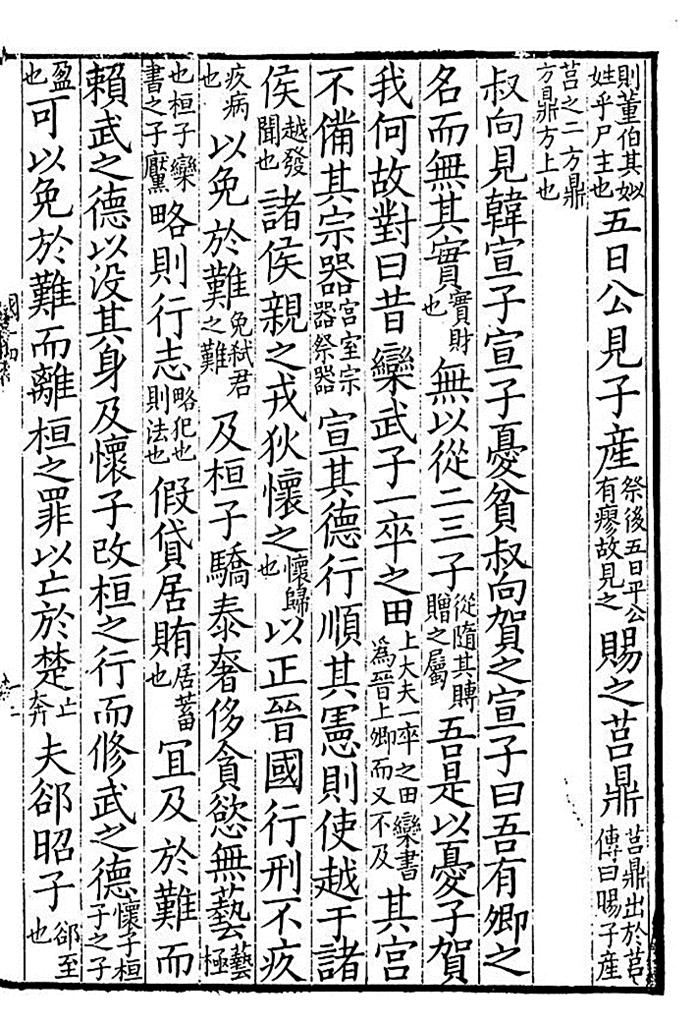 則董伯其姒姓乎尸主也五日公見子産祭後五日平公有瘳故見之賜之莒鼎莒鼎出於莒傳曰賜子産
莒之二方鼎方鼎方上也
叔向見韓宣子宣子憂貧叔向賀之宣子曰吾有卿之
名而無其實實財也無以從二三子從隨其賻贈之屬吾是以憂子賀
我何故對曰昔欒武子一卒之田上大夫一卒之田欒書爲晉上卿而又不及其宮
不備其宗器宮室宗器祭器宣其德行順其憲則使越于諸
侯越發聞也諸侯親之戎狄懷之懷歸也以正晉國行刑不疚
疚病也以免於難免弑君之難及桓子驕泰奢侈貪慾無藝藝極
也桓子欒書之子黶略則行志略犯也則法也假貸居賄居蓄也宜及於難而
賴武之德以没其身及懷子改桓之行而修武之德懷子桓子之子
盈也可以免於難而離桓之罪以亡於楚亡奔夫郤昭子郤至也